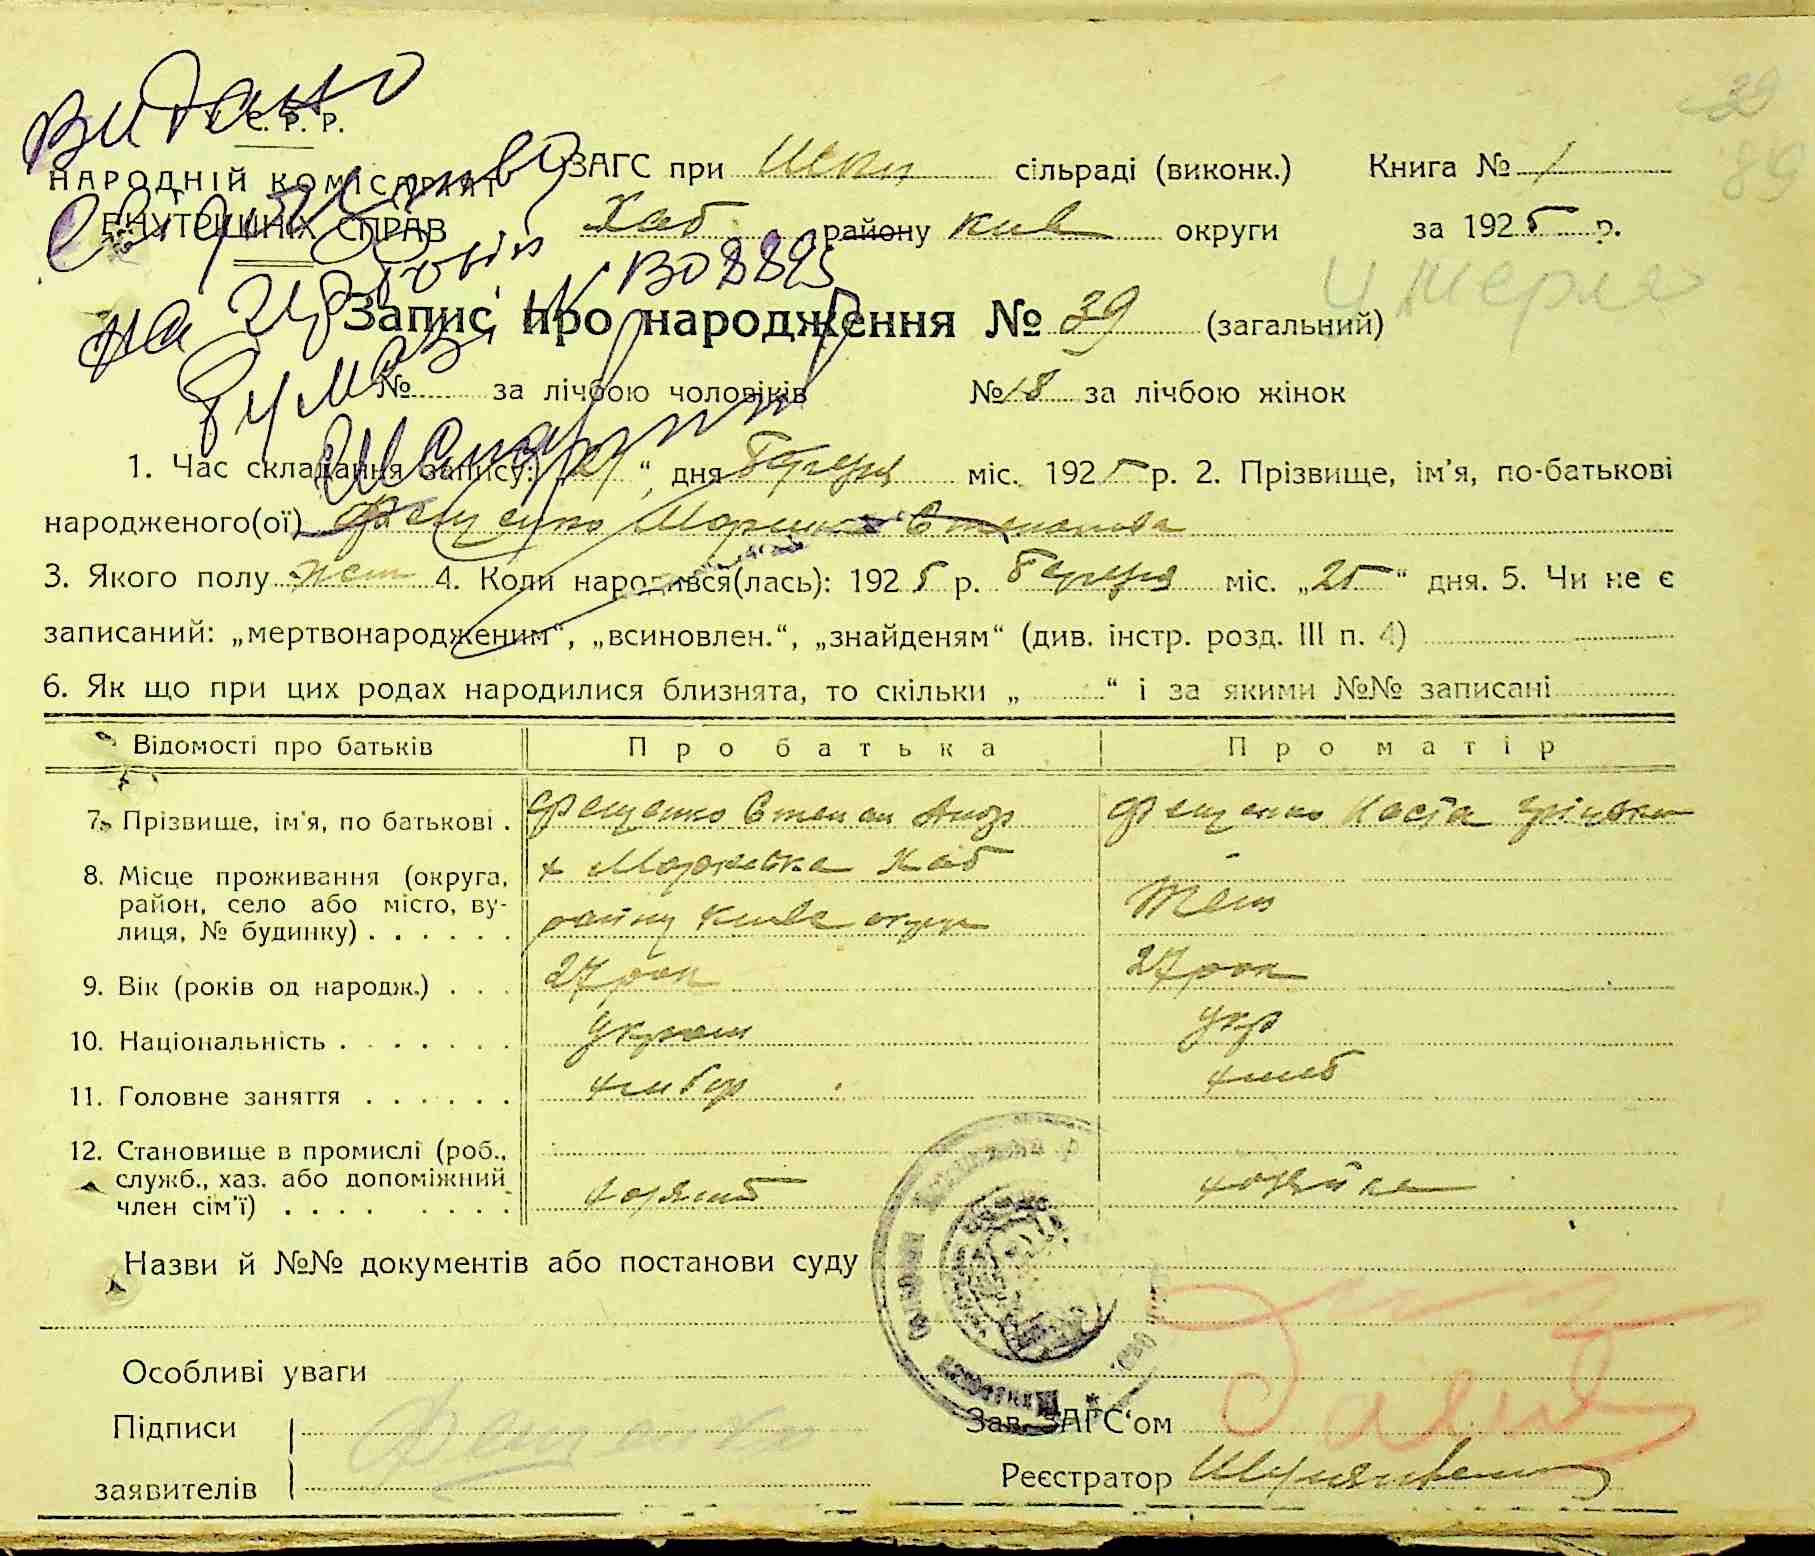 видано
39
89
У. С. Р. Р.
НАРОДНІЙ КОМІСАРІЯТ
ВНУТРІШНІХ СПРАВ
ЗАГС при сільраді (виконк.) Книга № 1
Хаб району Київ округи за 1925 р.
на гербовім
умерла
Запис про народження № 39 (загальний)
бумазі
№ за лічбою чоловіків №18 за лічбою жінок
1. Час складання запису: „ “ дня березня міс. 1925 р. 2. Прізвище, ім'я, по-батькові
народженого(ої) Фещенко Степанова
3. Якого полу жен 4. Коли народився(лась): 1925 р. березня міс. „25“ дня. 5. Чи не є
записаний: „мертвонародженим“, „всиновлен.“, „знайденям“ (див. інстр. розд. III п. 4)
6. Як що при цих родах народилися близнята, то скільки „ “ і за якими №№ записані
Відомості про батьків Про батька Про матір
7. Прізвище, ім'я, по батькові . Фещенко Степан Андр Фещенко Наста Гріцьков
8. Місце проживання (округа, район, село або місто, вулиця, № будинку) . . . . . . х Мар Хаб
району Київс округи Теж
9. Вік (років од народж.) . . . 27 рок 27 рок
10. Національність . . . . . . . Україн Укр
11. Головне заняття . . . . . . хлибор хлиб
12. Становище в промислі (роб., служб., хаз. або допоміжний член сім'ї) . . . . . . . . хозяїн хозяйка
Назви й №№ документів або постанови суду
Особливі уваги
Підписи Фещенко Зав. ЗАГС'ом
заявителів Реєстратор